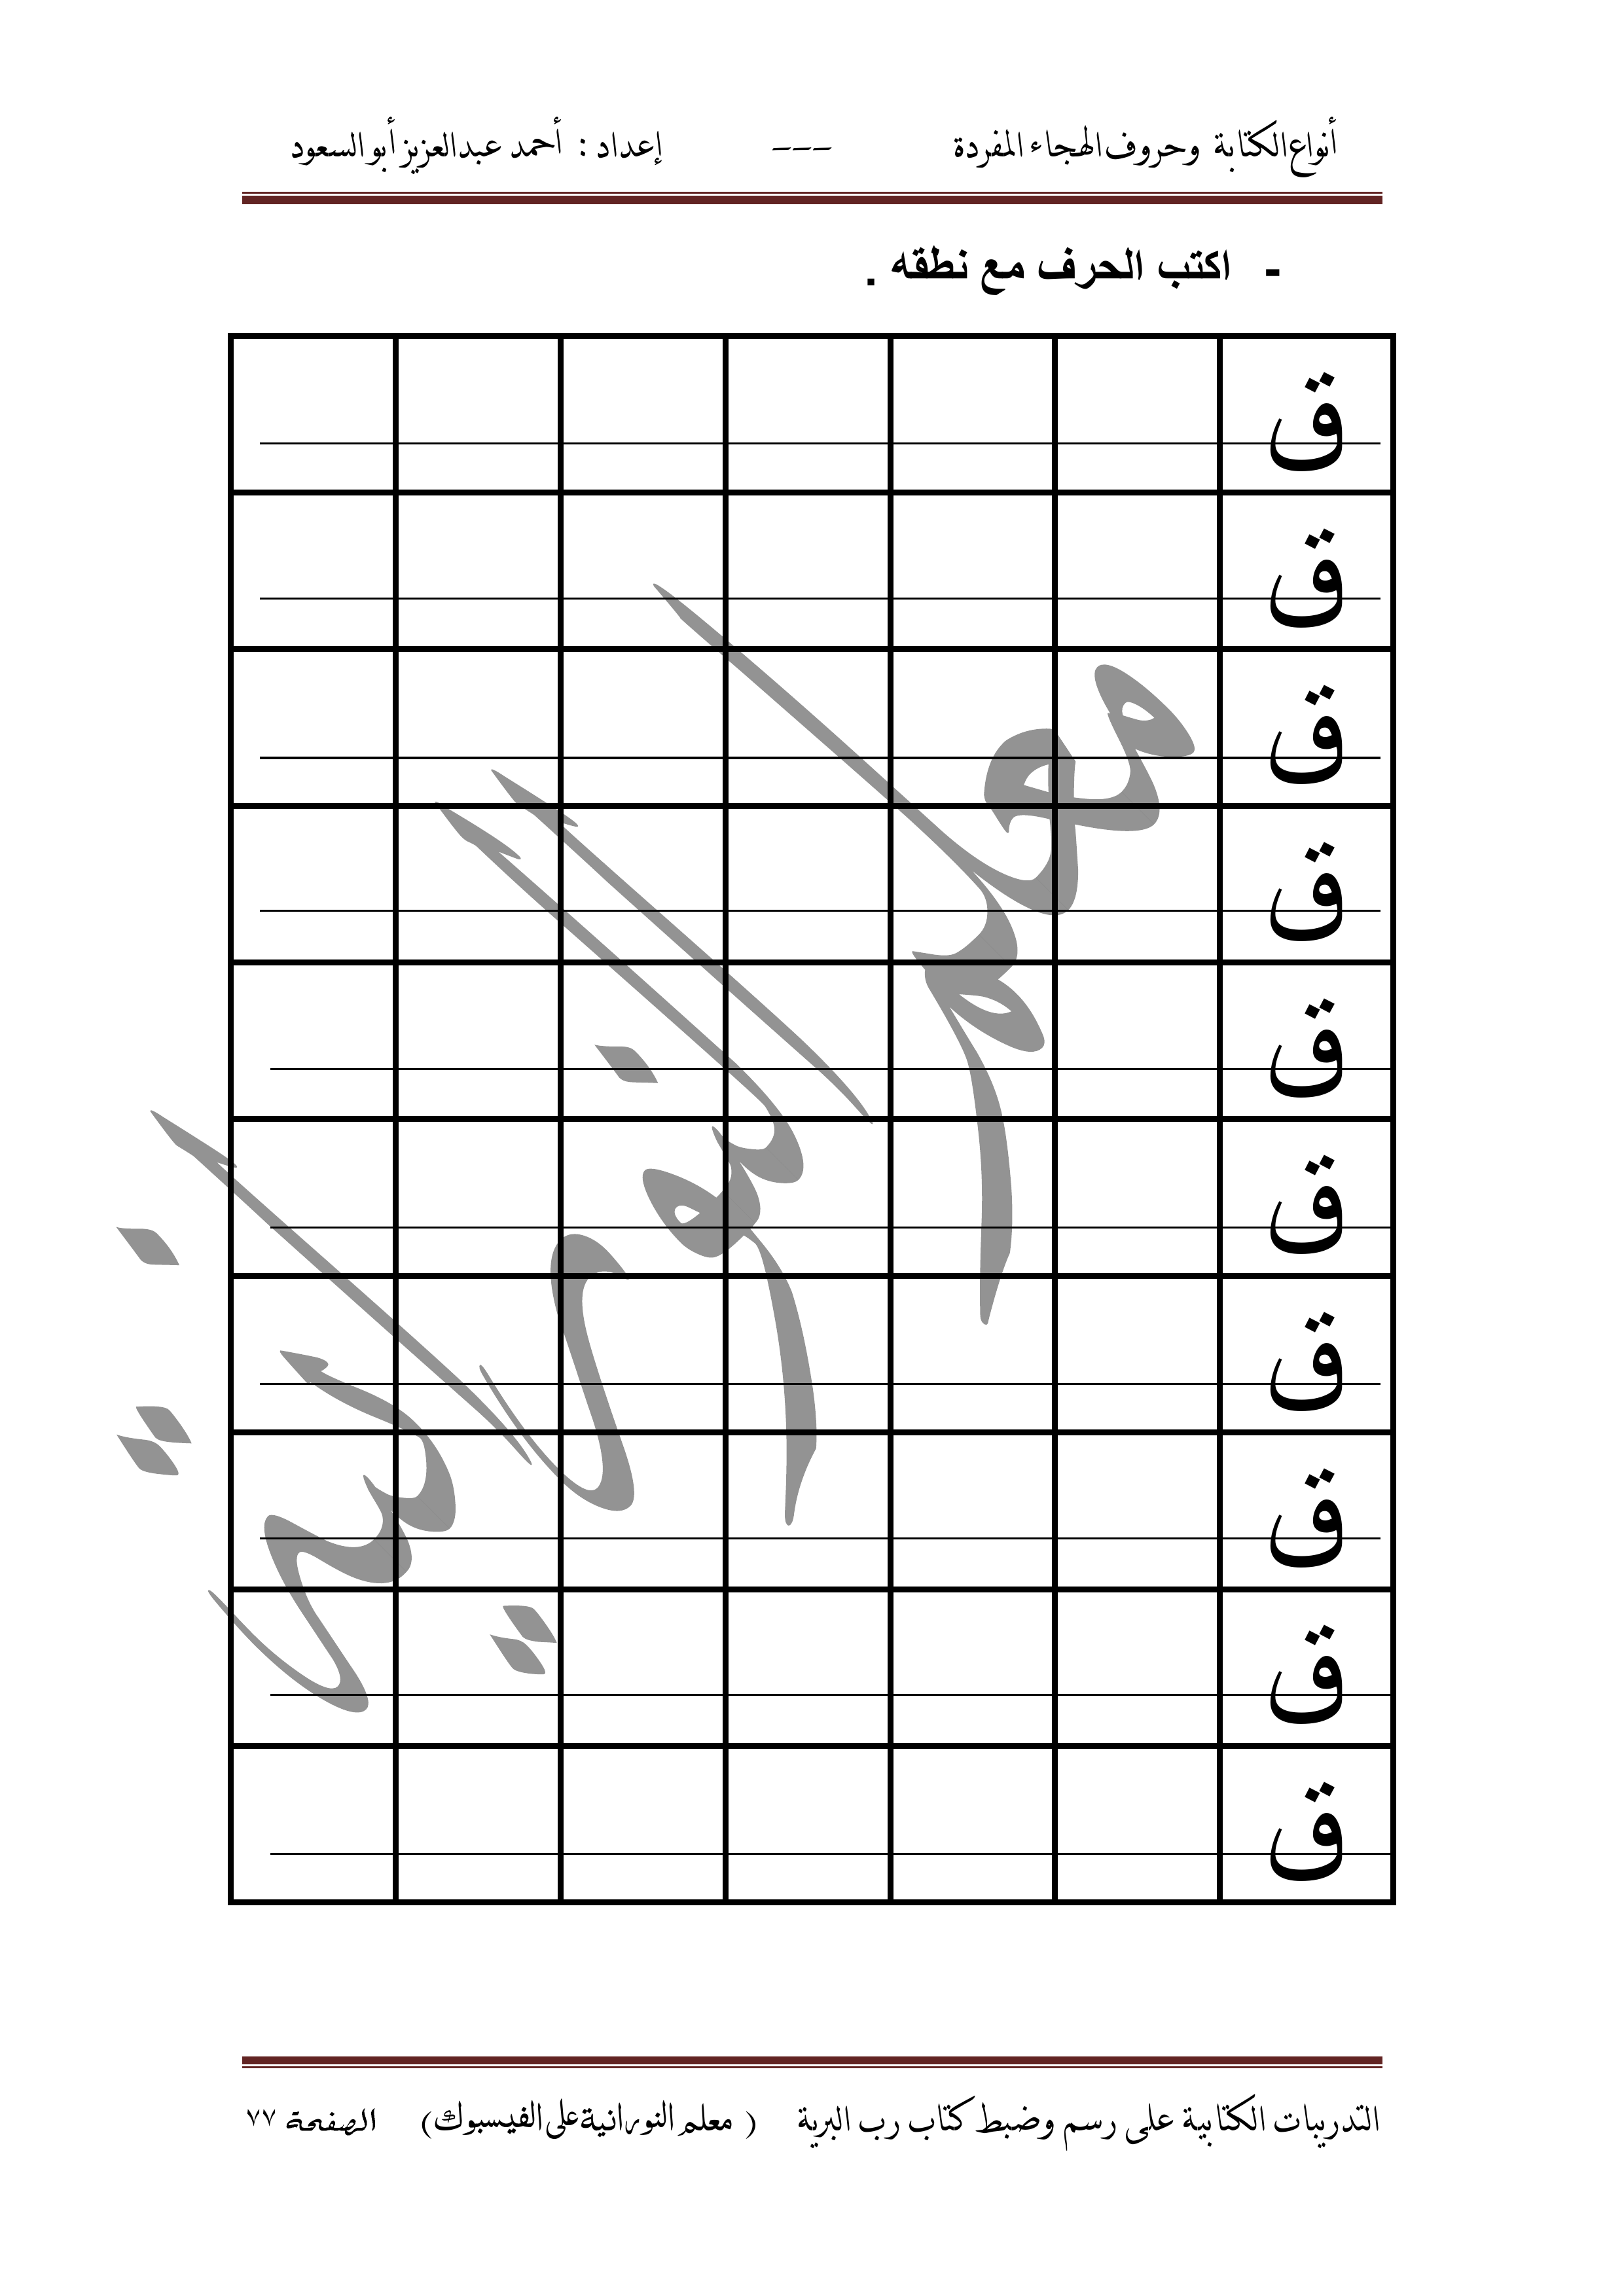 أنواع الكتابة وحروف الهجاء المفردة --- إعداد : أحمد عبدالعزيز أبو السعود
- اكتب الحرف مع نطقه .
ق
ق
ق
ق
ق
ق
ق
ق
ق
ق
معلم النورانية
التدريبات الكتابية على رسم وضبط كتاب رب البرية ( معلم النورانية على الفيسبوك) الصفحة ٧٧